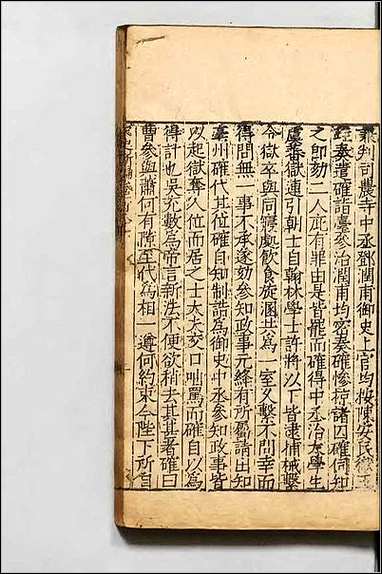 兼判司農寺中丞鄧潤甫御史上官均按陳安民獄王
珪奏遣確詣臺參治潤甫均密奏確慘掠諸囚確偵知
之即劾二人庇有罪由是皆罷而確得中丞治太學生
虞蕃獄連引朝士自翰林學士許將以下皆逮捕械繫
令獄卒與同寢處飲食旋溷共為一室久繫不問幸而
得問無一事不承遂劾參知政事元絳有所屬請出知
亳州確代其位確自知制誥為御史中丞參知政事皆
以起獄奪人位而居之士大夫交口咄罵而確自以為
得計也吳充數為帝言新法不便欲稍去其甚者確曰
曹參與蕭何有隙至代為相一遵何約束今陛下所自